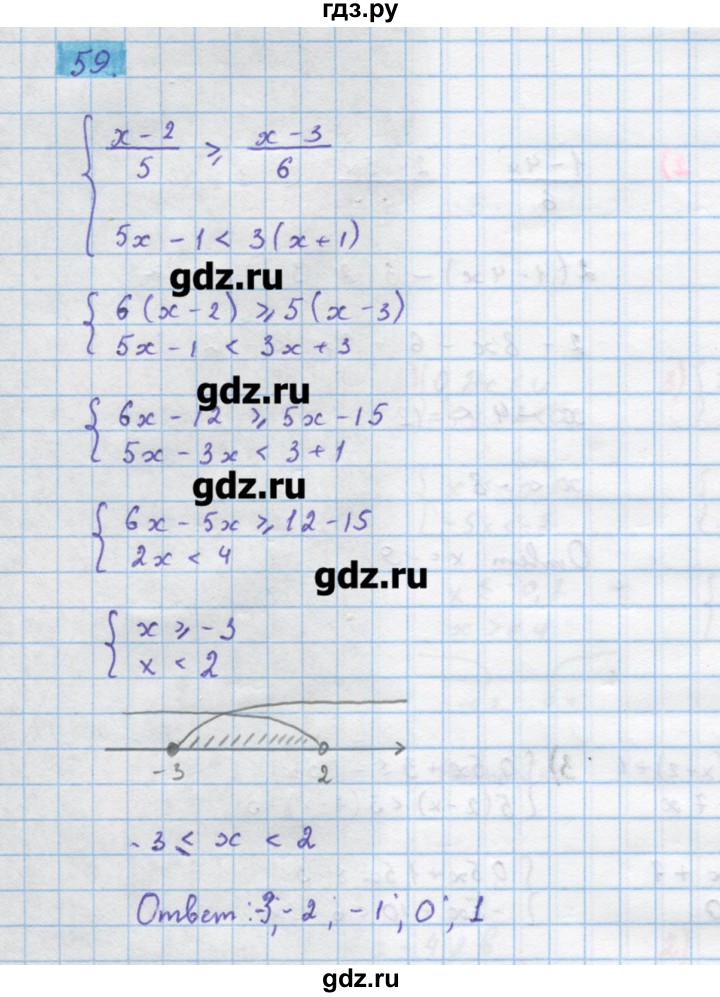 гдз.ру
59.
x - 2 / 5 ⩾ x - 3 / 6
5x - 1 < 3(x+1)
gdz.ru
6(x-2) ⩾ 5(x-3)
5x-1 < 3x+3
gdz.ru
6x-12 ⩾ 5x-15
5x-3x < 3+1
gdz.ru
6x-5x ⩾ 12-15
2x < 4
gdz.ru
x ⩾ -3
x < 2
-3 2
-3 ⩽ x < 2
Ответ: -3; -2; -1; 0; 1
gdz.ru